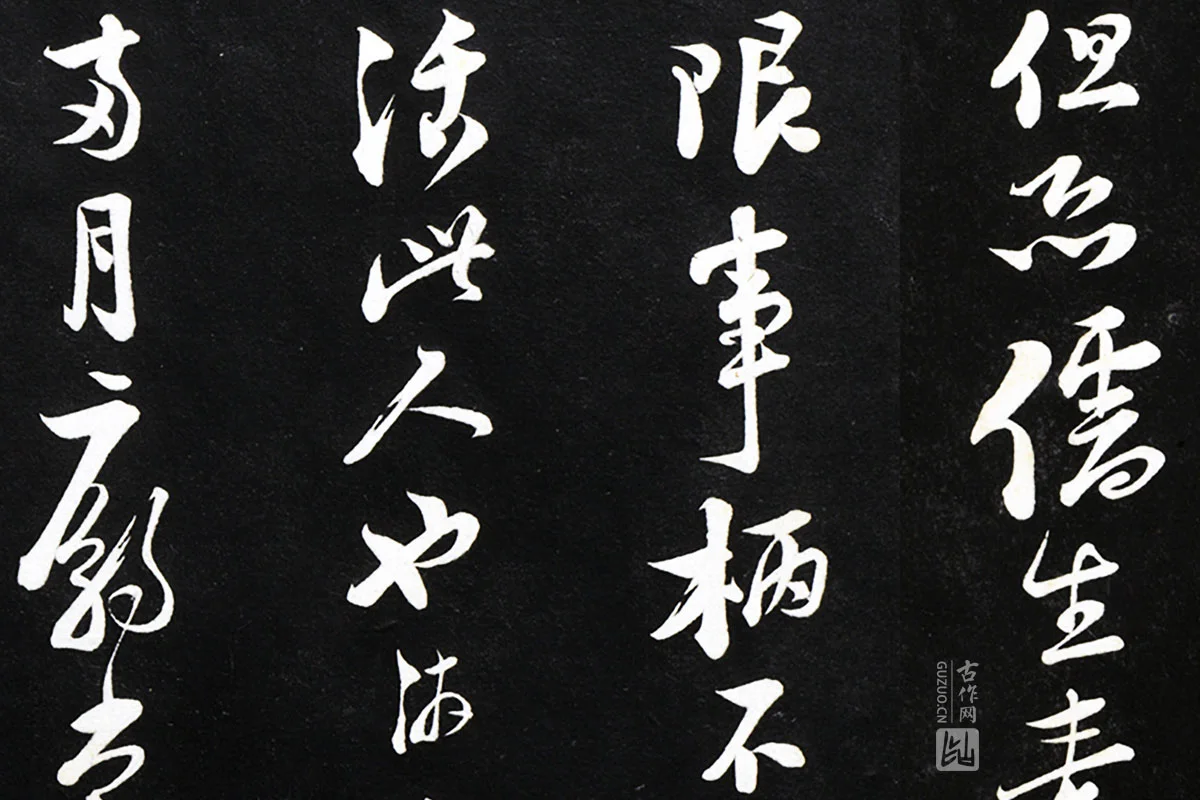 但恐儒生
限事柄不
活此人也
月
古作网
GUZUO.CN